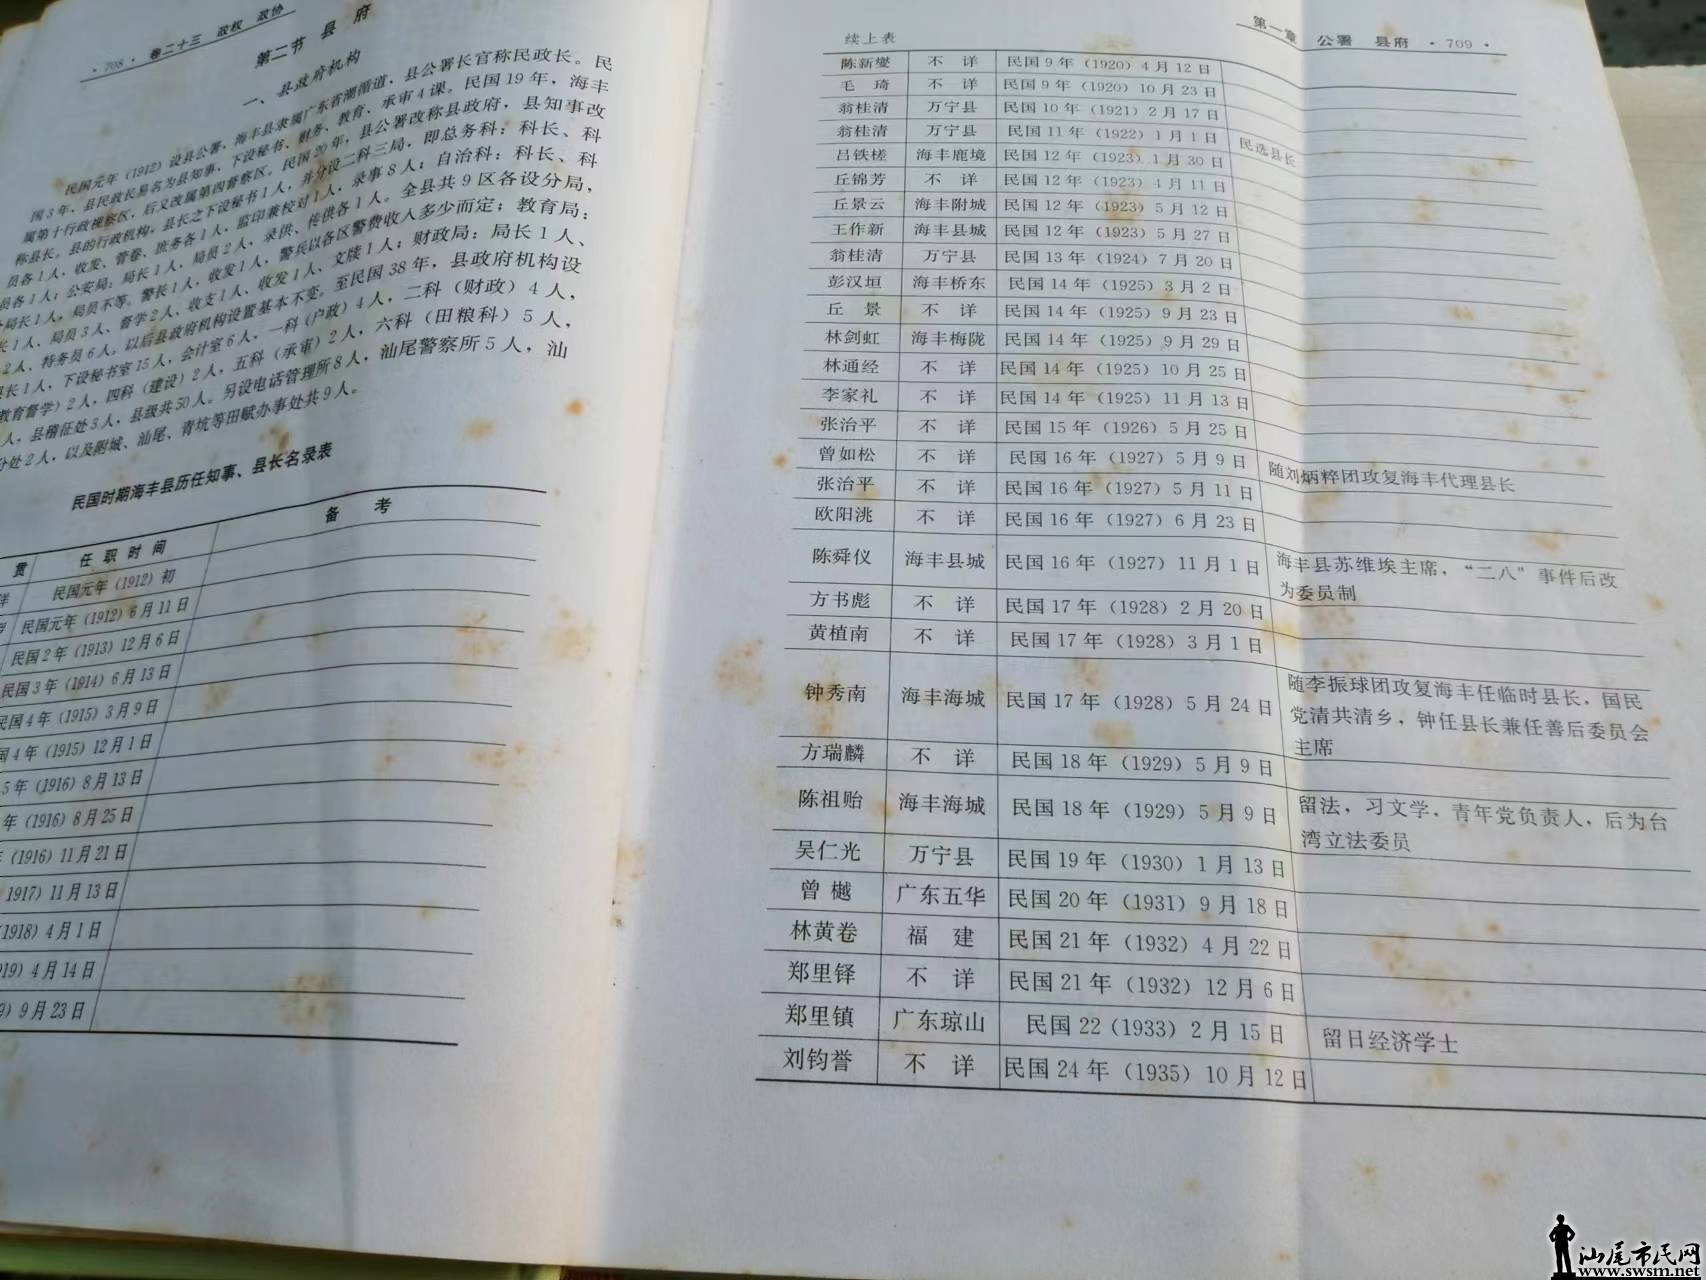 · 708 · 卷二十三 政权 政协
第二节 县 府
一、县政府机构
民国元年（1912）设县公署，海丰县隶属广东省潮循道，县公署长官称民政长。民
国3年，县民政长易名为县知事，下设秘书、财务、教育、承审4课。民国19年，海丰
属第十行政视察区，后又改属第四督察区。民国20年，县公署改称县政府，县知事改
称县长。县的行政机构，县长之下设秘书1人，并分设二科三局，即总务科：科长、科
员各1人，收发、管卷、庶务各1人，监印兼校对1人，录事8人；自治科：科长、科
员各1人；公安局：局长1人，局员2人，录供、传供各1人。全县共9区各设分局，
局长1人，局员不等。警长1人，收发1人，警兵以各区警费收入多少而定；教育局：
长1人、局员3人、督学2人、收支1人、收发1人、文牍1人；财政局：局长1人、
2人、特务员6人。以后县政府机构设置基本不变。至民国38年，县政府机构设
长1人，下设秘书室15人，会计室6人，一科（户政）4人，二科（财政）4人，
教育督学）2人，四科（建设）2人，五科（承审）2人，六科（田粮科）5人，
人，县稽征处3人，县级共50人。另设电话管理所8人，汕尾警察所5人，汕
分处2人，以及附城、汕尾、青坑等田赋办事处共9人。
民国时期海丰县历任知事、县长名录表
贯 任 职 时 间 备 考
民国元年（1912）初
民国元年（1912）6月11日
民国2年（1913）12月6日
民国3年（1914）6月13日
民国4年（1915）3月9日
国4年（1915）12月1日
5年（1916）8月13日
年（1916）8月25日
（1916）11月21日
1917）11月13日
1918）4月1日
919）4月14日
9）9月23日
第一章 公署 县府 · 709 ·
续上表
陈新燮 不 详 民国9年（1920）4月12日
毛 琦 不 详 民国9年（1920）10月23日
翁桂清 万宁县 民国10年（1921）2月17日
翁桂清 万宁县 民国11年（1922）1月1日 民选县长
吕铁槎 海丰鹿境 民国12年（1923）1月30日
丘锦芳 不 详 民国12年（1923）4月11日
丘景云 海丰附城 民国12年（1923）5月12日
王作新 海丰县城 民国12年（1923）5月27日
翁桂清 万宁县 民国13年（1924）7月20日
彭汉垣 海丰桥东 民国14年（1925）3月2日
丘 景 不 详 民国14年（1925）9月23日
林剑虹 海丰梅陇 民国14年（1925）9月29日
林通经 不 详 民国14年（1925）10月25日
李家礼 不 详 民国14年（1925）11月13日
张治平 不 详 民国15年（1926）5月25日
曾如松 不 详 民国16年（1927）5月9日 随刘炳粹团攻复海丰代理县长
张治平 不 详 民国16年（1927）5月11日
欧阳洮 不 详 民国16年（1927）6月23日
陈舜仪 海丰县城 民国16年（1927）11月1日 海丰县苏维埃主席，“二八”事件后改
为委员制
方书彪 不 详 民国17年（1928）2月20日
黄植南 不 详 民国17年（1928）3月1日
钟秀南 海丰海城 民国17年（1928）5月24日 随李振球团攻复海丰任临时县长，国民
党清共清乡，钟任县长兼任善后委员会
主席
方瑞麟 不 详 民国18年（1929）5月9日
陈祖贻 海丰海城 民国18年（1929）5月9日 留法，习文学，青年党负责人，后为台
湾立法委员
吴仁光 万宁县 民国19年（1930）1月13日
曾 樾 广东五华 民国20年（1931）9月18日
林黄卷 福 建 民国21年（1932）4月22日
郑里铎 不 详 民国21年（1932）12月6日
郑里镇 广东琼山 民国22（1933）2月15日 留日经济学士
刘钧誉 不 详 民国24年（1935）10月12日
汕尾市民网
www.swsm.net